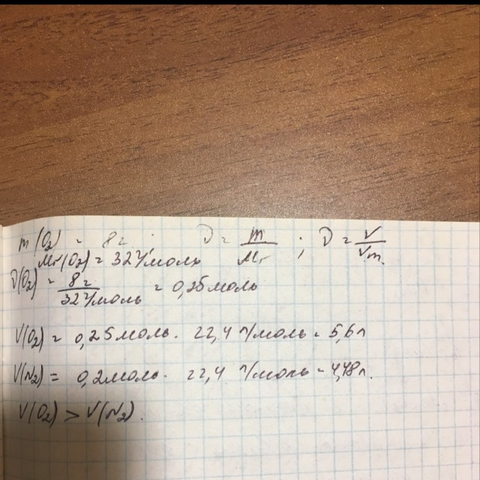 m(O₂) = 8г ; ν = m/Mr ; ν = V/Vm.
Mr(O₂) = 32 г/моль
ν(O₂) = 8г/32 г/моль = 0,25 моль
V(O₂) = 0,25 моль · 22,4 л/моль = 5,6 л
V(N₂) = 0,2 моль · 22,4 л/моль = 4,48 л.
V(O₂) > V(N₂).